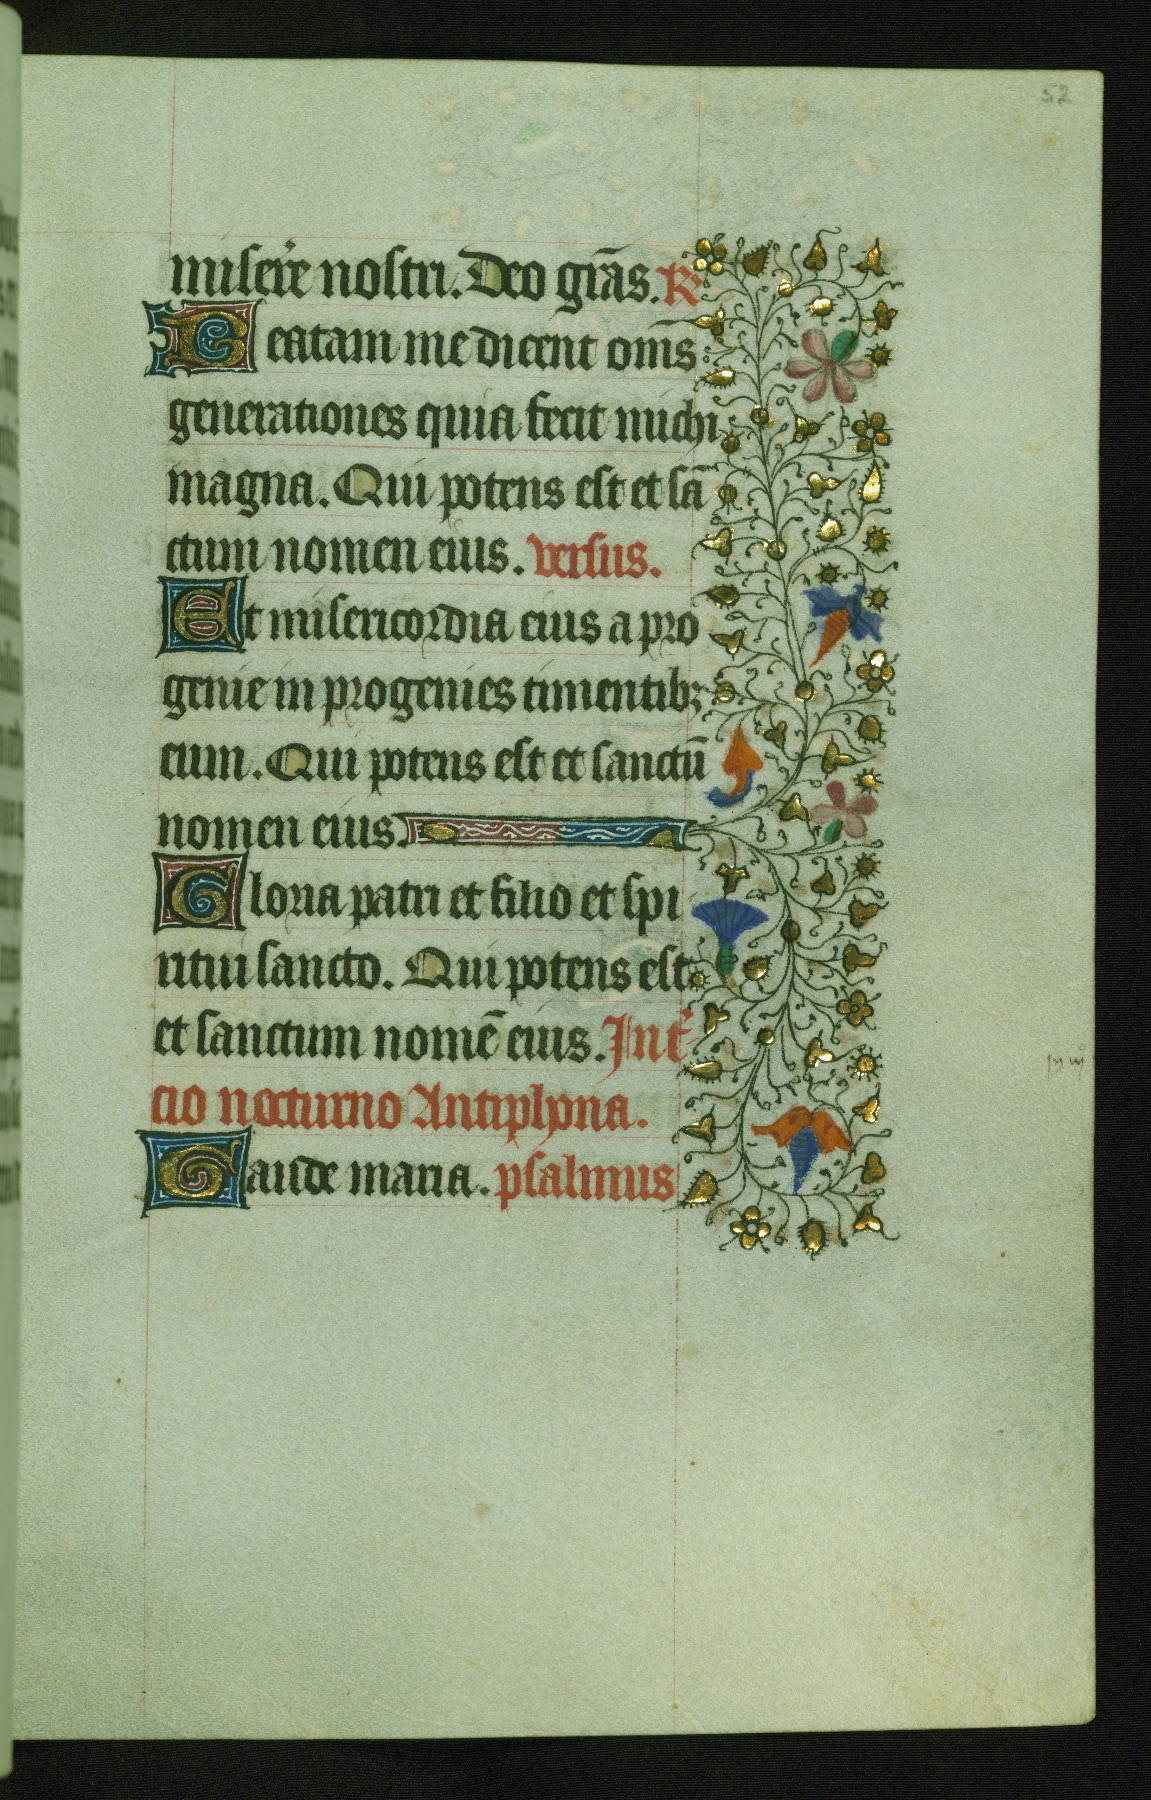 52
miserē nostri. Deo grās. R
Beatam me dicent oīns
generationes quia fecit michi
magna. Qui potens est et sā
ctum nomen eius. versus.
Et misericordia eius a pro
genie in progenies timentibꝫ
eum. Qui potens est et sanctū
nomen eius.
Gloria patri et filio et spi
ritui sancto. Qui potens est
et sanctum nomē eius. In t̄
cio nocturno Antiphona.
Gaude maria. psalmus